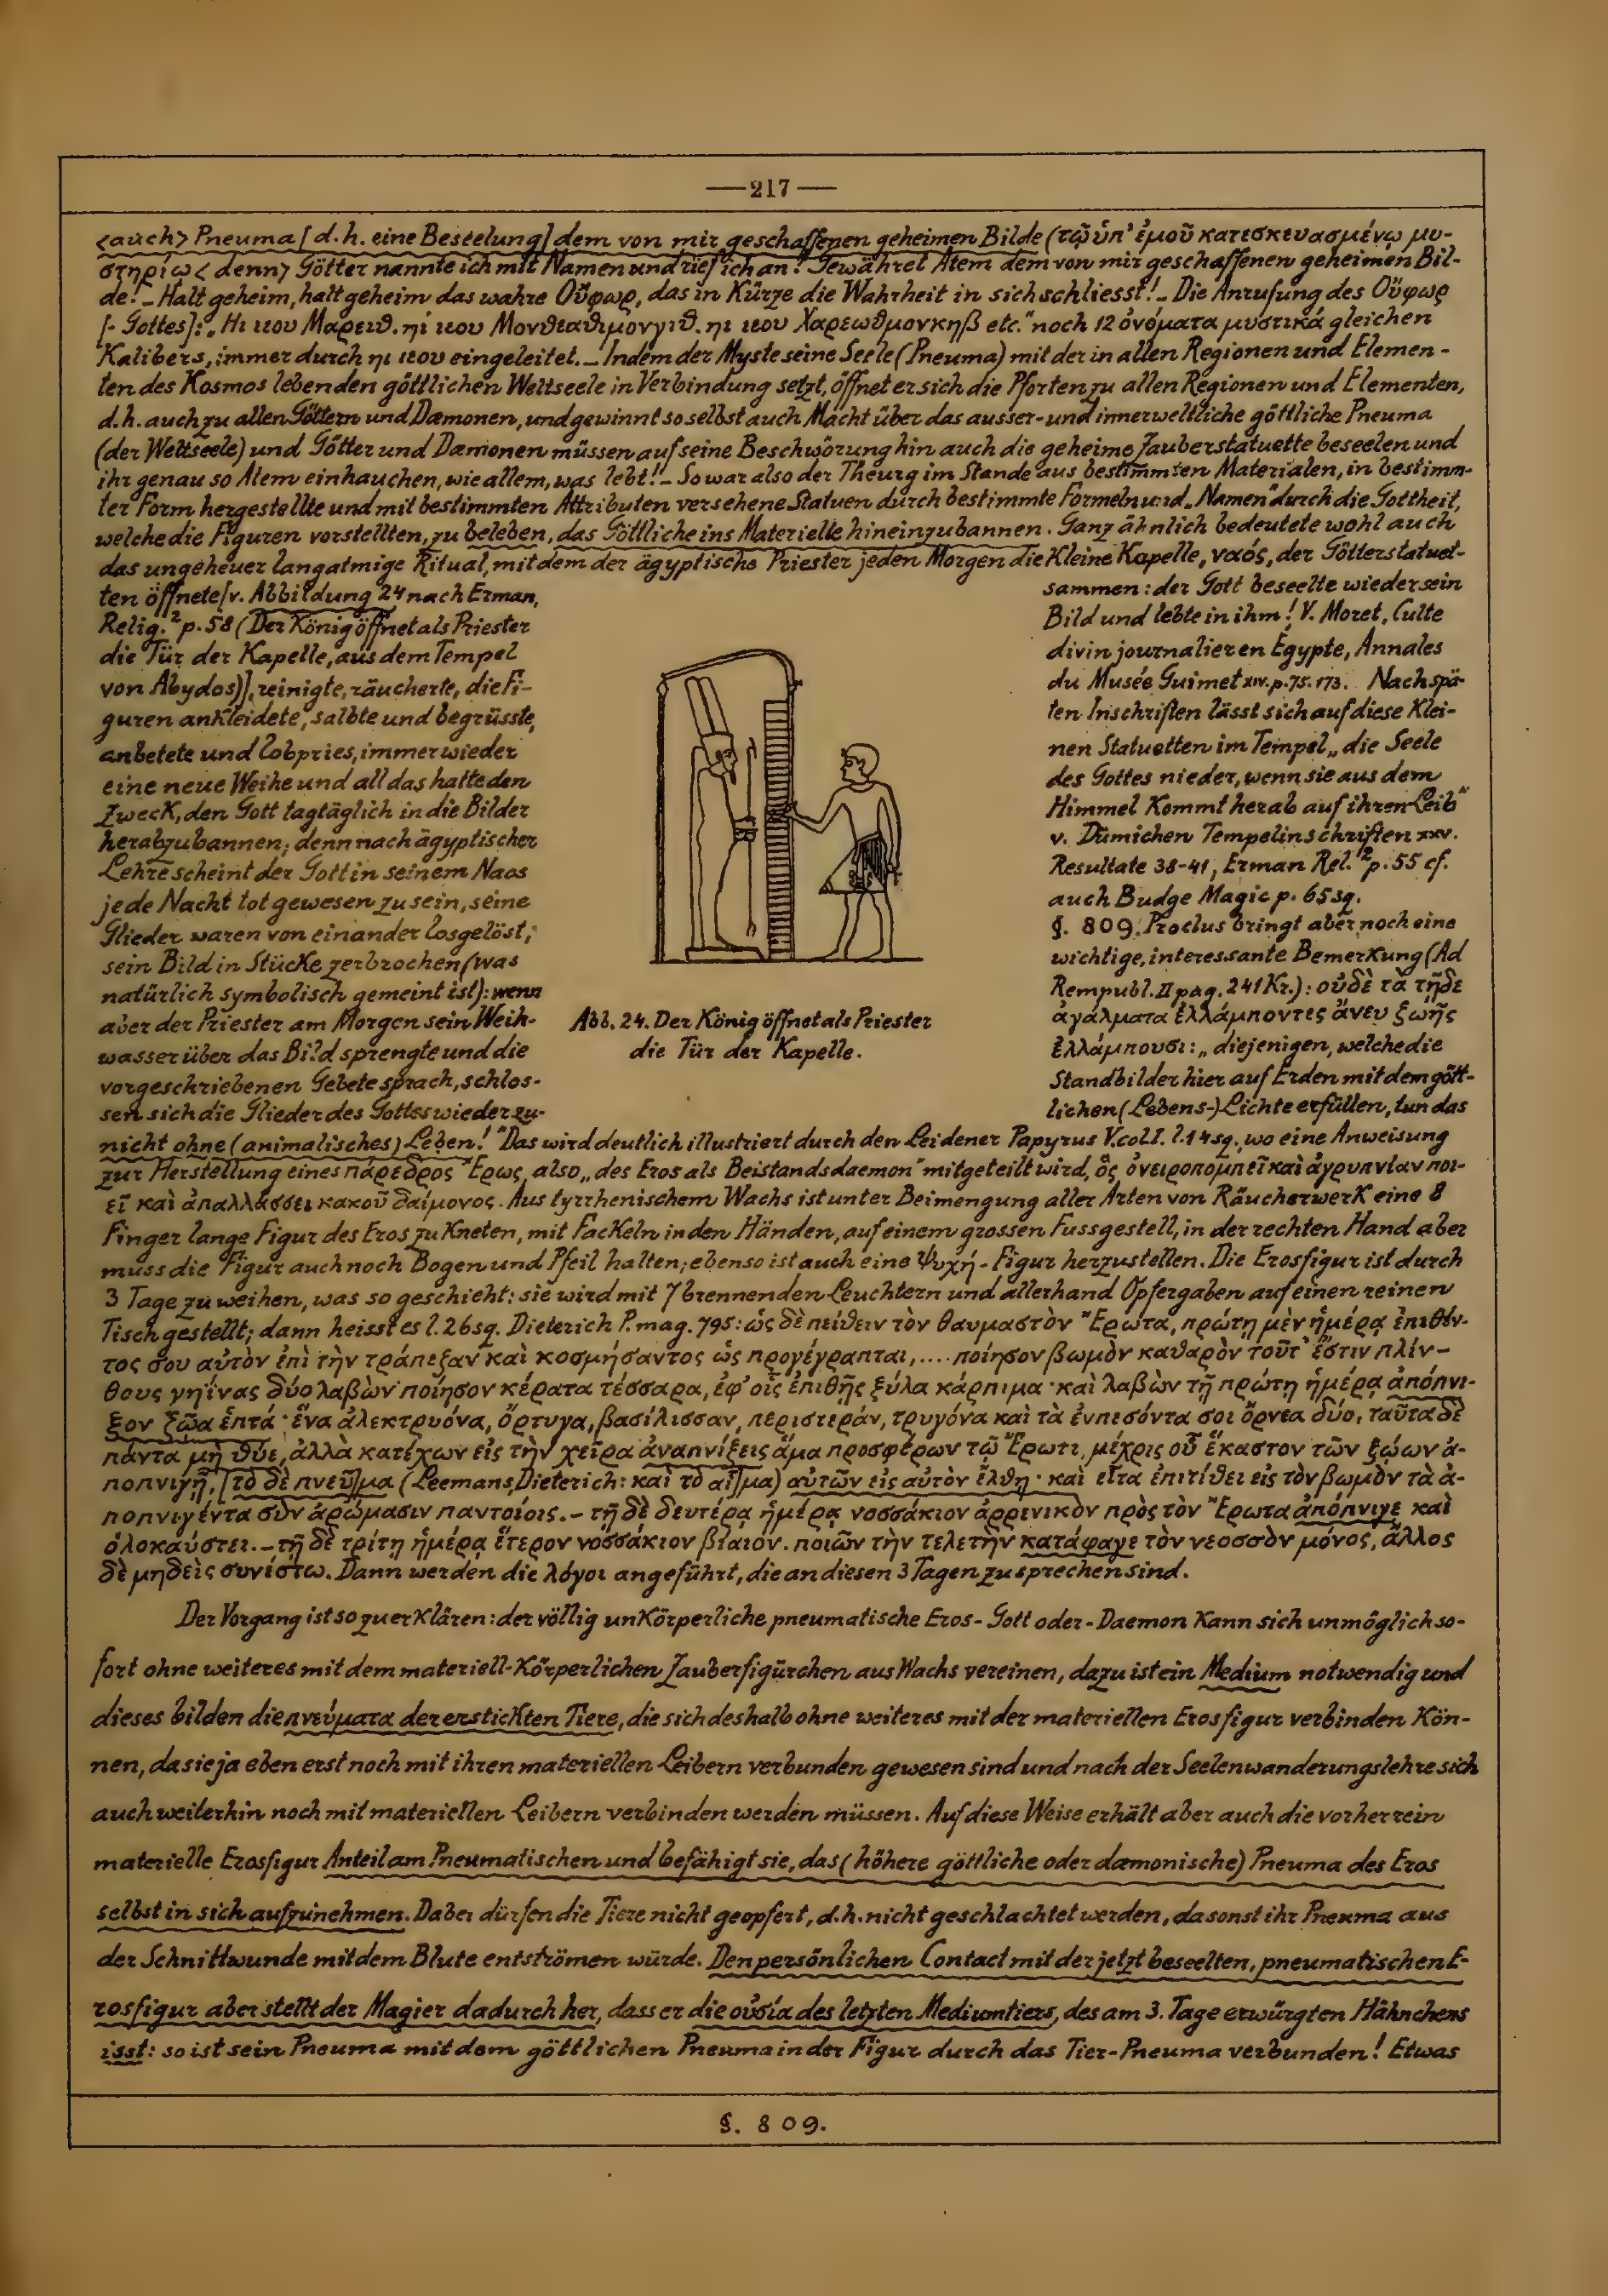 —217—
<auch> Pneuma [d.h. eine Beseelung] dem von mir geschaffenen geheimen Bilde (τῷ ὑπ' ἐμοῦ κατεσκευασμένῳ μυ-
στηρίῳ < denn> Götter nannte ich mit Namen und rief ich an! Gewähret Atem dem von mir geschaffenen geheimen Bil-
de! – Halt geheim, halt geheim das wahre Οὔφωρ, das in Kürze die Wahrheit in sich schliesst! – Die Anrufung des Οὔφωρ
[- Gottes]: „Ηι ιεου Μαρειθ. ηί ιεου Μονθεαθιμονγιθ. ηι ιεου Χαρεωθμονκηβ etc." noch 12 ὀνόματα μυστικά gleichen
Kalibers, immer durch ηι ιεου eingeleitet. – Indem der Myste seine Seele (Pneuma) mit der in allen Regionen und Elemen-
ten des Kosmos lebenden göttlichen Weltseele in Verbindung setzt, öffnet er sich die Pforten zu allen Regionen und Elementen,
d.h. auch zu allen Göttern und Dæmonen, und gewinnt so selbst auch Macht über das ausser- und innerweltliche göttliche Pneuma
(der Weltseele) und Götter und Dæmonen müssen auf seine Beschwörung hin auch die geheime Zauberstatuette beseelen und
ihr genau so Atem einhauchen, wie allem, was lebt! – So war also der Theurg im Stande aus bestimmten Materialen, in bestimm-
ter Form hergestellte und mit bestimmten Attributen versehene Statuen durch bestimmte Formeln und „Namen" durch die Gottheit,
welche die Figuren vorstellten, zu beleben, das Göttliche ins Materielle hineinzubannen. Ganz ähnlich bedeutete wohl auch
das ungeheuer langatmige Ritual, mit dem der ägyptische Priester jeden Morgen die Kleine Kapelle, ναός, der Götterstatuet-
ten öffnete [v. Abbildung 24 nach Erman,
Relig.² p. 58 (Der König öffnet als Priester
die Tür der Kapelle, aus dem Tempel
von Abydos)], reinigte, räucherte, die Fi-
guren ankleidete, salbte und begrüsste,
anbetete und lobpries, immer wieder
eine neue Weihe und all das hatte den
Zweck, den Gott tagtäglich in die Bilder
herabzubannen; denn nach ägyptischer
Lehre scheint der Gott in seinem Naos
jede Nacht tot gewesen zu sein, seine
Glieder waren von einander losgelöst;
sein Bild in Stücke zerbrochen (was
natürlich symbolisch gemeint ist): wenn
aber der Priester am Morgen sein Weih-
wasser über das Bild sprengte und die
vorgeschriebenen Gebete sprach, schlos-
sen sich die Glieder des Gottes wieder zu-
Abb. 24. Der König öffnet als Priester
die Tür der Kapelle.
sammen: der Gott beseelte wieder sein
Bild und lebte in ihm! V. Moret, Culte
divin journalier en Egypte, Annales
du Musée Guimet XIV. p. 75. 173. Nach spä-
ten Inschriften lässt sich auf diese Klei-
nen Statuetten im Tempel „die Seele
des Gottes nieder, wenn sie aus dem
Himmel Kommt herab auf ihren Leib"
v. Dümichen Tempelinschriften XXV.
Resultate 38-41, Erman Rel.² p. 55 cf.
auch Budge Magic p. 65 sq.
§. 809. Proclus bringt aber noch eine
wichtige, interessante Bemerkung (Ad
Rempubl. II pag. 241 Kr.): οὐδὲ τὰ τῇδε
ἀγάλματα ἐλλάμποντες ἄνευ ζωῆς
ἐλλάμπουσι: „diejenigen, welche die
Standbilder hier auf Erden mit dem gött-
lichen (Lebens-) Lichte erfüllen, tun das
nicht ohne (animalisches) Leben!" Das wird deutlich illustriert durch den Leidener Papyrus V. col I. l. 14 sq., wo eine Anweisung
zur Herstellung eines πάρεδρος Ἔρως, also „des Eros als Beistandsdaemon" mitgeteilt wird, ὃς ὀνειροπομπεῖ καὶ ἀγρυπνίαν ποι-
εῖ καὶ ἀπαλλάσσει κακοῦ δαίμονος. Aus tyrrhenischem Wachs ist unter Beimengung aller Arten von Räucherwerk eine 8
Finger lange Figur des Eros zu Kneten, mit Fackeln in den Händen, auf einem grossen Fussgestell, in der rechten Hand aber
muss die Figur auch noch Bogen und Pfeil halten; ebenso ist auch eine Ψυχή- Figur herzustellen. Die Erosfigur ist durch
3 Tage zu weihen, was so geschieht: sie wird mit 7 brennenden Leuchtern und allerhand Opfergaben auf einen reinen
Tisch gestellt; dann heisst es l. 26 sq. Dieterich P. mag. 795: ὡς δὲ πείθειν τὸν θαυμαστὸν Ἔρωτα, πρώτῃ μὲν ἡμέρᾳ ἐπιθέν-
τος σου αὐτὸν ἐπὶ τὴν τράπεζαν καὶ κοσμήσαντος ὡς προγέγραπται, .... ποίησον βωμὸν καθαρὸν τοῦτ' ἔστιν πλίν-
θους γηΐνας δύο λαβὼν ποίησον κέρατα τέσσαρα, ἐφ' οἷς ἐπιθῇς ξύλα κάρπιμα· καὶ λαβὼν τῇ πρώτῃ ἡμέρᾳ ἀπόπνι-
ξον ζῷα ἑπτά· ἕνα ἀλεκτρυόνα, ὄρτυγα, βασίλισσαν, περιστεράν, τρυγόνα καὶ τὰ ἐνπεσόντα σοι ὄρνεα δύο. ταῦτα δὲ
πάντα μὴ θῦε, ἀλλὰ κατέχων εἰς τὴν χεῖρα ἀναπνίξεις ἅμα προσφέρων τῷ Ἔρωτι, μέχρις οὗ ἕκαστον τῶν ζῴων ἀ-
ποπνιγῇ, [τὸ δὲ πνεῦ]μα (Leemans, Dieterich: καὶ τὸ αἷ]μα) αὐτῶν εἰς αὐτὸν ἔλθῃ· καὶ εἶτα ἐπιτίθει εἰς τὸν βωμὸν τὰ ἀ-
ποπνιγέντα σὺν ἀρώμασιν παντοίοις. – τῇ δὲ δευτέρᾳ ἡμέρᾳ νοσσάκιον ἀρρενικὸν πρὸς τὸν Ἔρωτα ἀπόπνιγε καὶ
ὁλοκαύστει. – τῇ δὲ τρίτῃ ἡμέρᾳ ἕτερον νοσσάκιον βίαιον. ποιῶν τὴν τελετὴν κατάφαγε τὸν νεοσσὸν μόνος, ἄλλος
δὲ μηδεὶς συνίστω. Dann werden die λόγοι angeführt, die an diesen 3 Tagen zu sprechen sind.
Der Vorgang ist so zu erklären: der völlig unkörperliche pneumatische Eros- Gott oder -Daemon Kann sich unmöglich so-
fort ohne weiteres mit dem materiell-Körperlichen Zauberfigürchen aus Wachs vereinen, dazu ist ein Medium notwendig und
dieses bilden die πνεύματα der erstickten Tiere, die sich deshalb ohne weiteres mit der materiellen Erosfigur verbinden Kön-
nen, da sie ja eben erst noch mit ihren materiellen Leibern verbunden gewesen sind und nach der Seelenwanderungslehre sich
auch weiterhin noch mit materiellen Leibern verbinden werden müssen. Auf diese Weise erhält aber auch die vorher rein
materielle Erosfigur Anteil am Pneumatischen und befähigt sie, das (höhere göttliche oder dæmonische) Pneuma des Eros
selbst in sich aufzunehmen. Dabei dürfen die Tiere nicht geopfert, d.h. nicht geschlachtet werden, da sonst ihr Pneuma aus
der Schnittwunde mit dem Blute entströmen würde. Den persönlichen Contact mit der jetzt beseelten, pneumatischen E-
rosfigur aber stellt der Magier dadurch her, dass er die οὐσία des letzten Mediumtiers, des am 3. Tage erwürgten Hähnchens
isst: so ist sein Pneuma mit dem göttlichen Pneuma in der Figur durch das Tier-Pneuma verbunden! Etwas
§. 809.